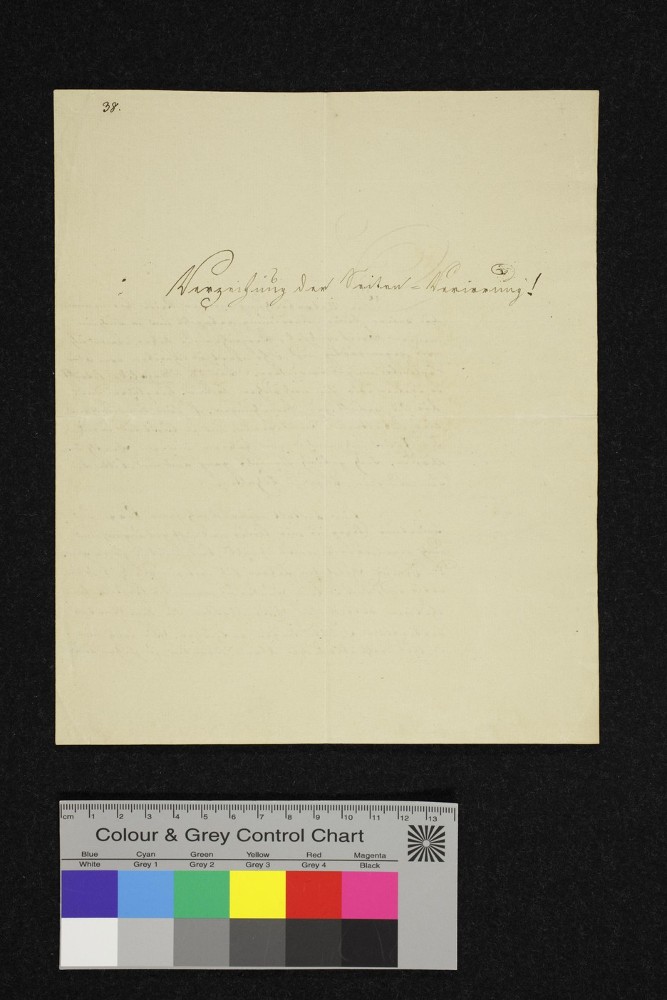 38.
: Verzeihung der Seiten-Verirrung!
cm 1 2 3 4 5 6 7 8 9 10 11 12 13
Colour & Grey Control Chart
Blue Cyan Green Yellow Red Magenta
White Grey 1 Grey 2 Grey 3 Grey 4 Black